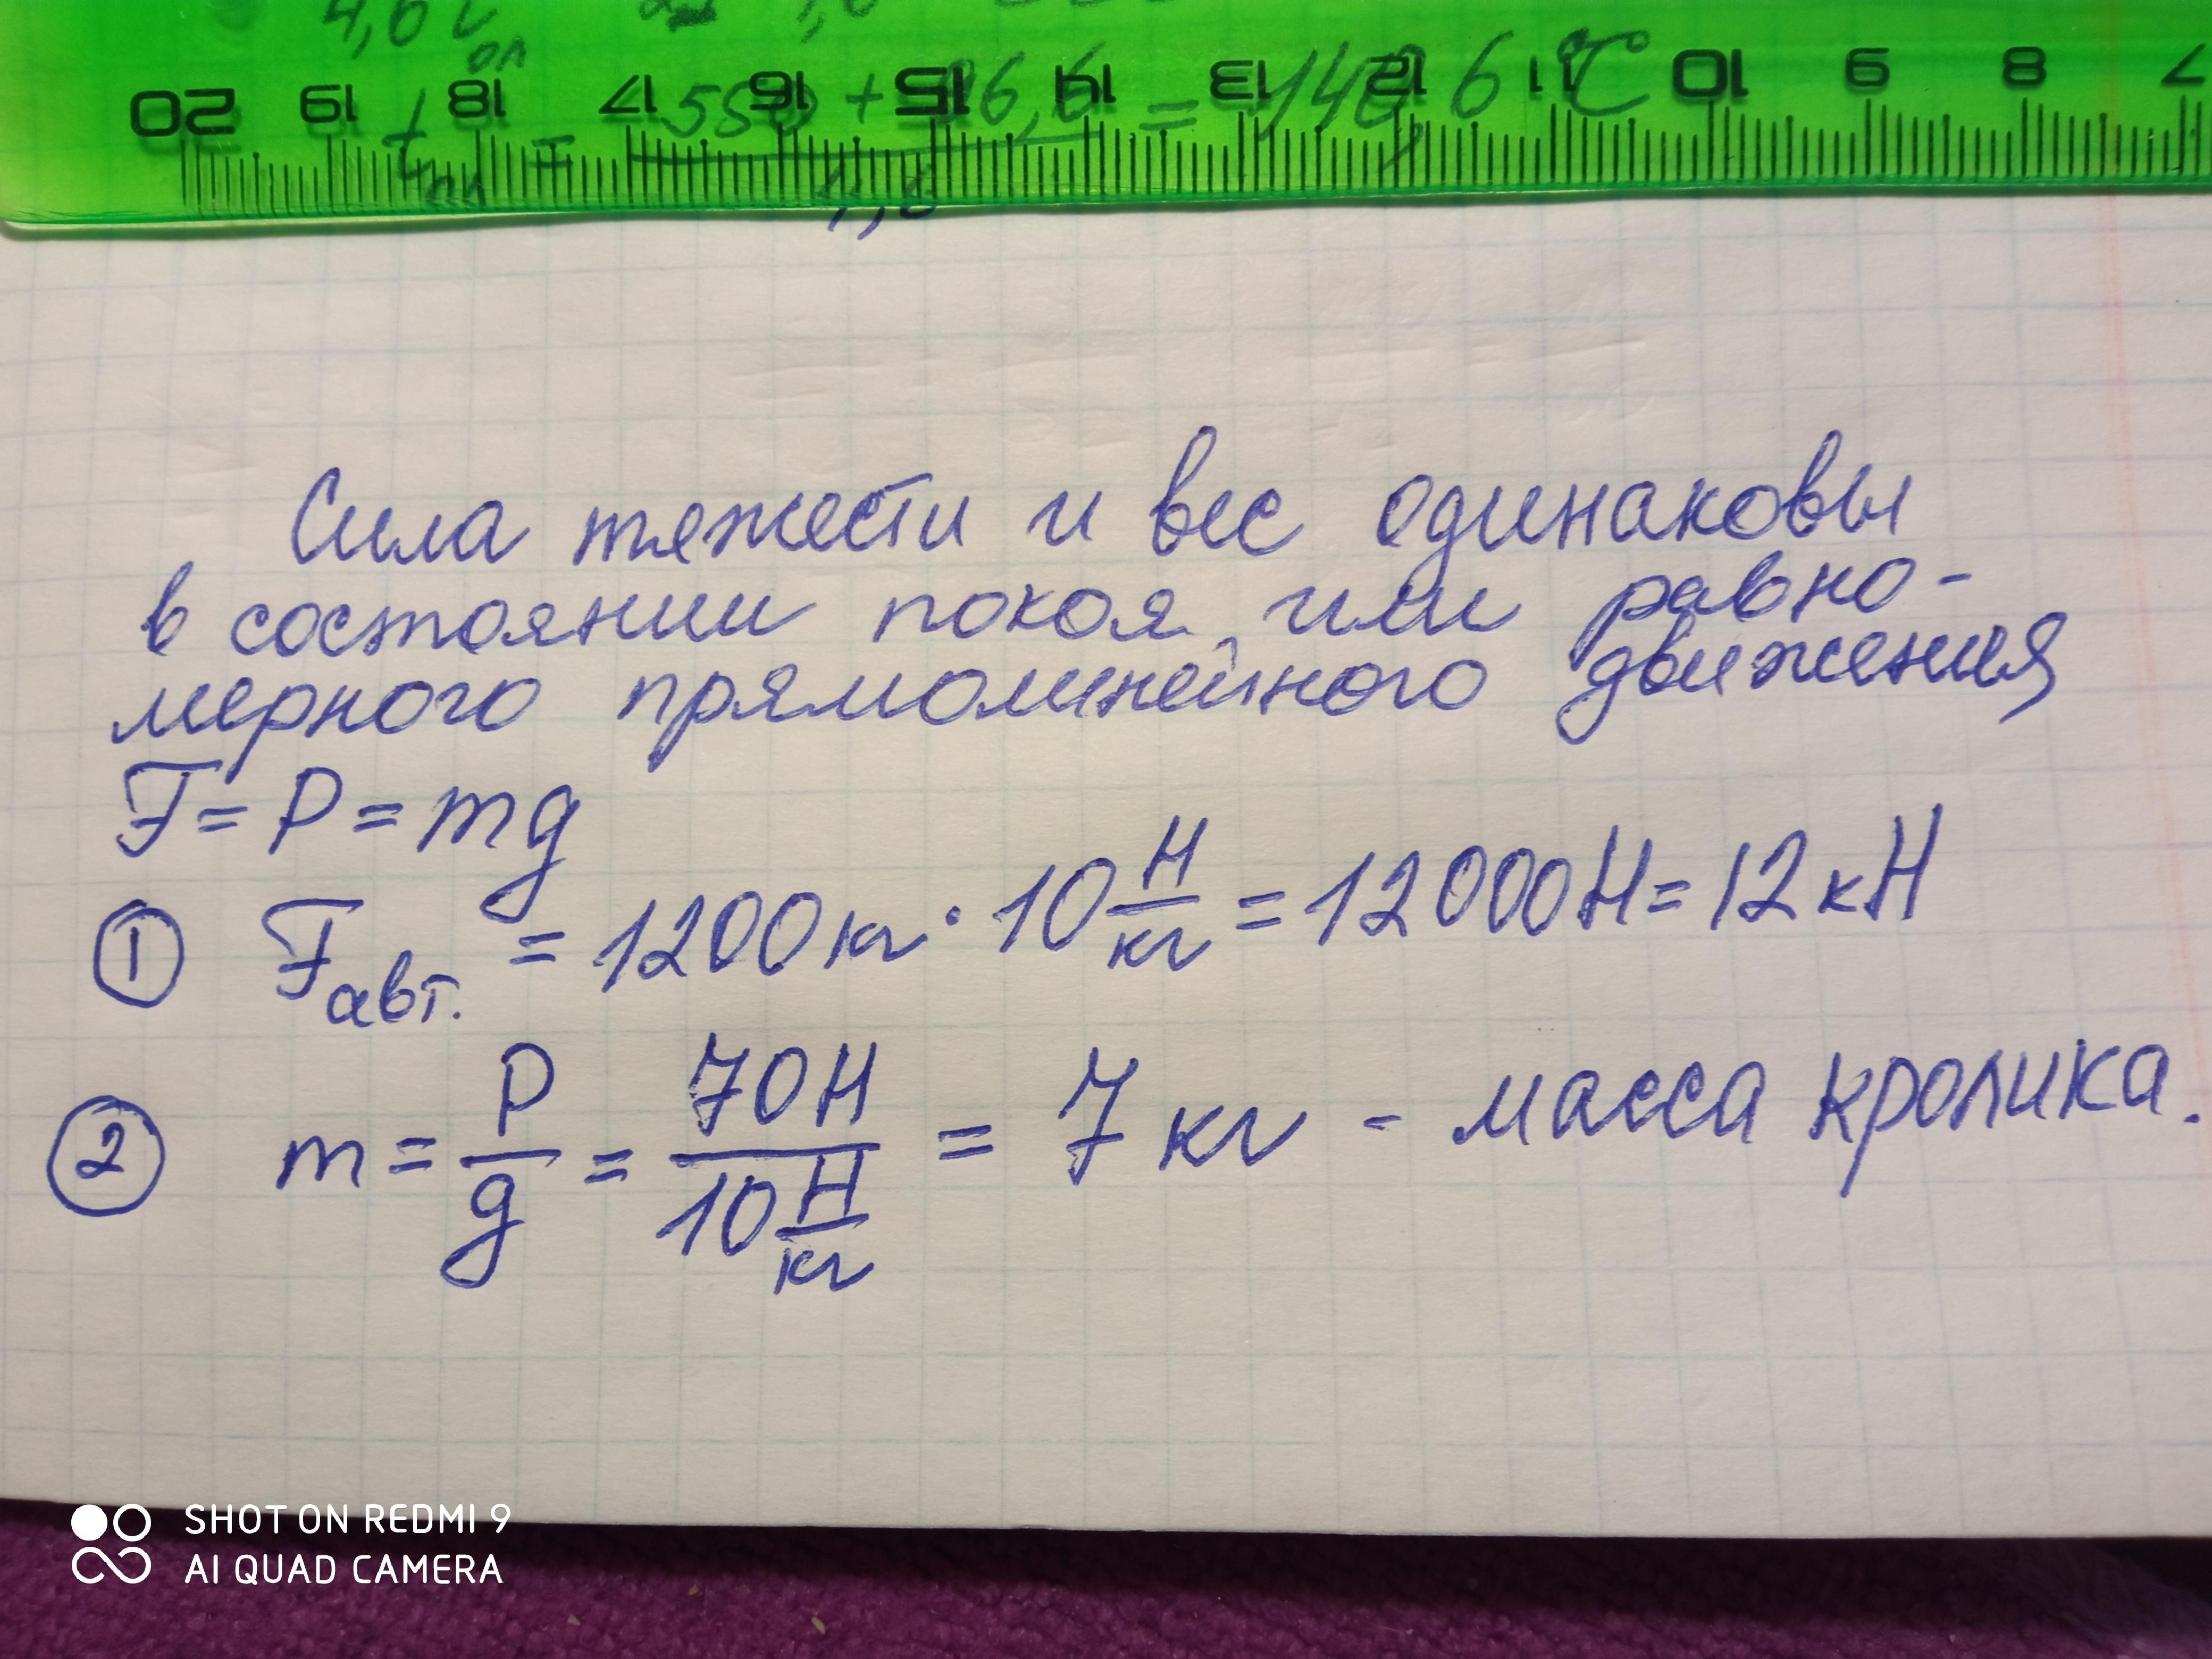 20 19 18 17 16 15 14 13 12 11 10 9 8 7
= 550 + 96,6 = 140,6 °C
4,6
Сила тяжести и вес одинаковы
в состоянии покоя или равно-
мерного прямолинейного движения
F = P = mg
① Fавт. = 1200кг · 10 Н/кг = 12000Н = 12 кН
② m = P/g = 70Н/10 Н/кг = 7 кг - масса кролика.
SHOT ON REDMI 9
AI QUAD CAMERA